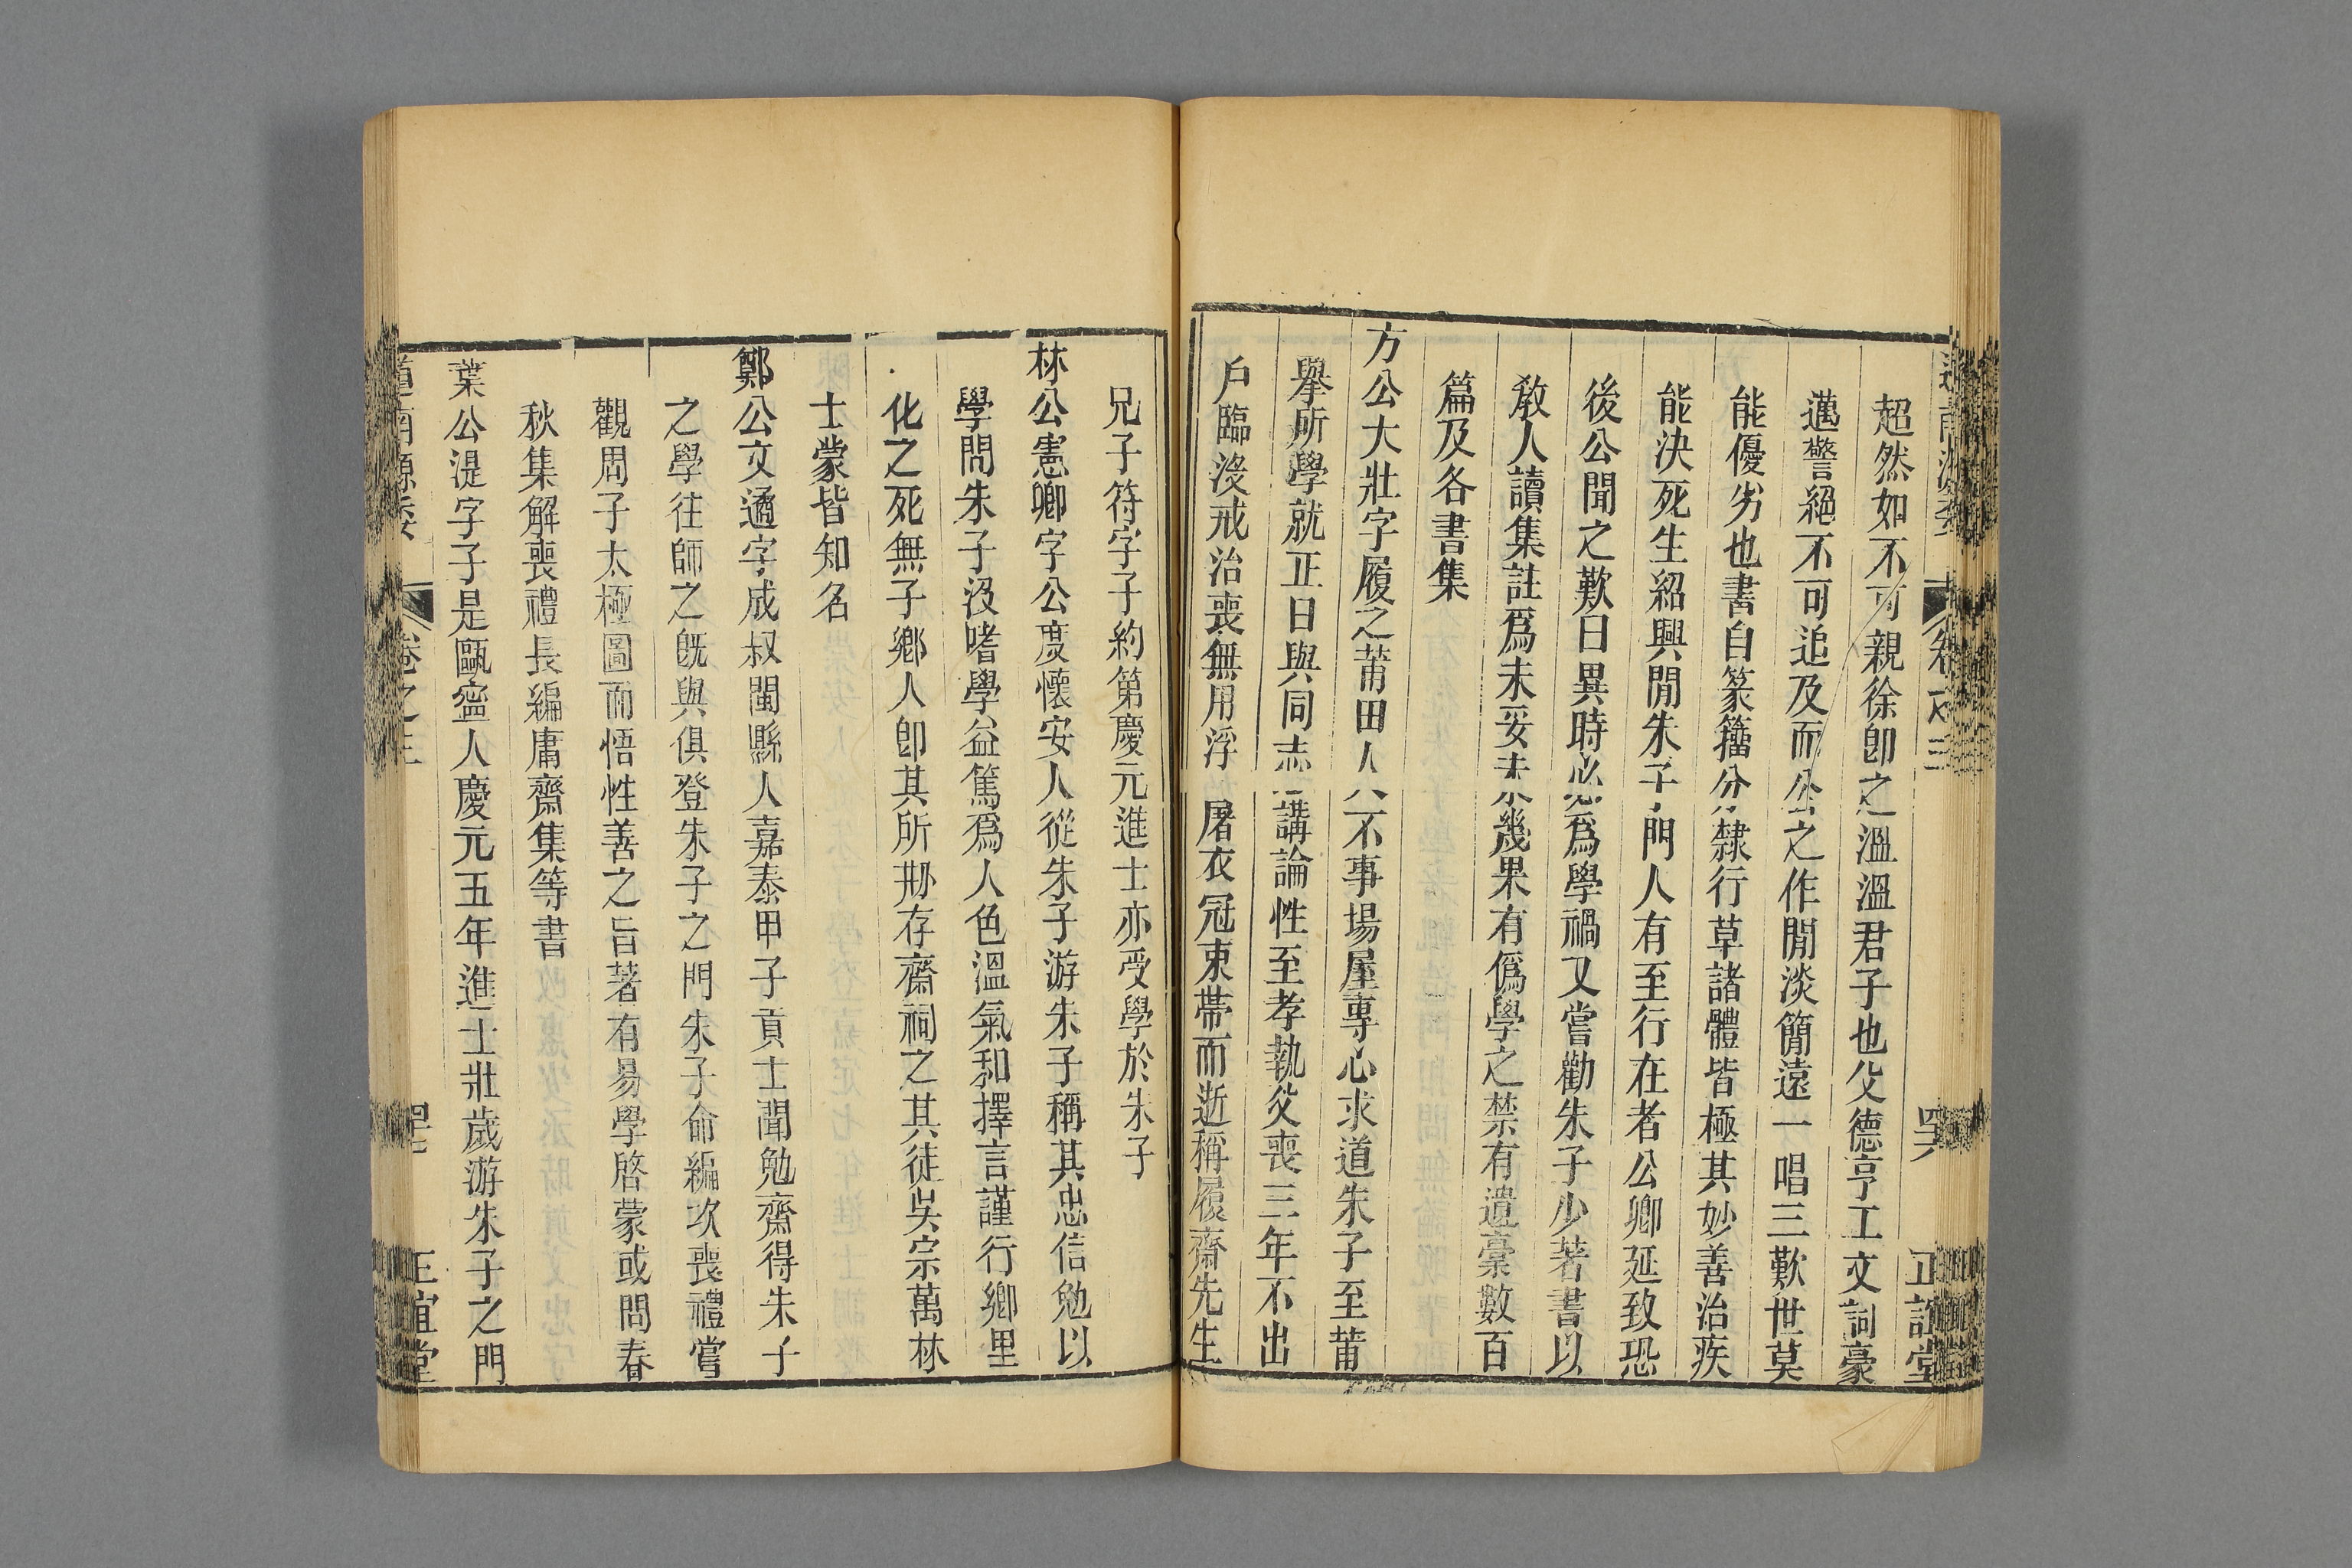 道南源委 卷之三 罕 正誼堂
超然如不可親徐卽之溫溫君子也父德亨工文詞豪
邁警絕不可追及而公之作閒淡簡遠一唱三歎世莫
能優劣也書自篆籀分隸行草諸體皆極其妙善治疾
能決死生紹興閒朱子門人有至行在者公卿延致恐
後公聞之歎曰異時必爲學禍又嘗勸朱子少著書以
敎人讀集註爲未妥未幾果有僞學之禁有遺稾數百
篇及各書集
方公大壯字履之莆田人不事場屋專心求道朱子至莆
擧所學就正日與同志講論性至孝執父喪三年不出
戶臨沒戒治喪無用浮屠衣冠束帶而逝稱履齋先生
兄子符字子約第慶元進士亦受學於朱子
林公憲卿字公度懷安人從朱子游朱子稱其忠信勉以
學問朱子沒嗜學益篤爲人色溫氣和擇言謹行鄉里
化之死無子鄉人卽其所剙存齋祠之其徒吳宗萬林
士蒙皆知名
鄭公文遹字成叔閩縣人嘉泰甲子貢士聞勉齋得朱子
之學往師之旣與俱登朱子之門朱子命編次喪禮嘗
觀周子太極圖而悟性善之旨著有易學啓蒙或問春
秋集解喪禮長編庸齋集等書
葉公湜字子是甌寧人慶元五年進士壯歲游朱子之門
道南源委 卷之三 正誼堂